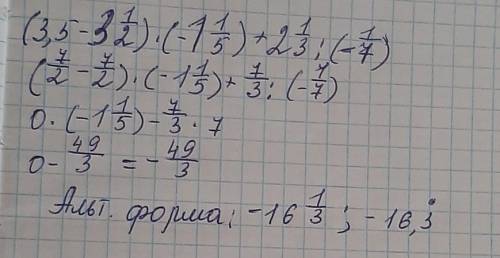 (3,5-3 1/2)·(-1 1/5)+2 1/3:(-1/7)
(7/2-7/2)·(-1 1/5)+7/3:(-1/7)
0·(-1 1/5)-7/3·7
0-49/3=-49/3
Альт. форма: -16 1/3; -16,3̇